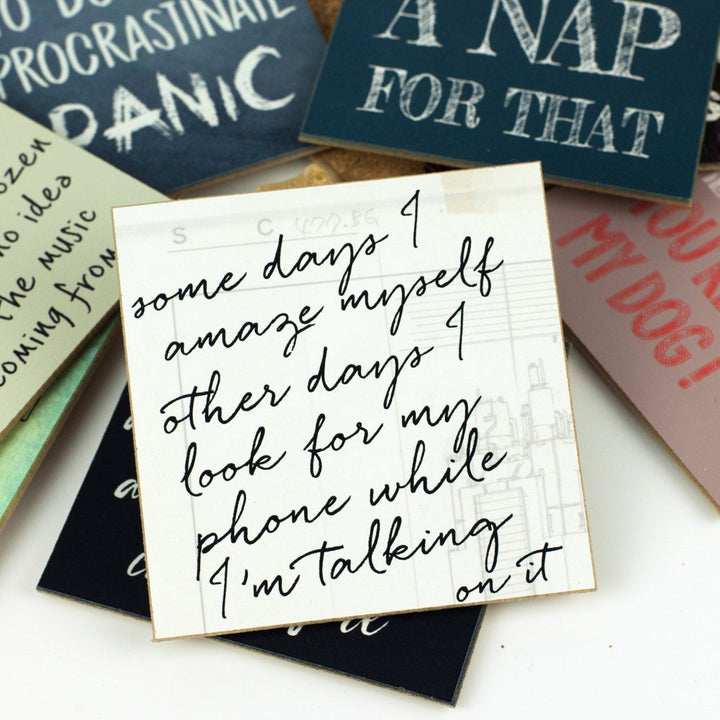 PROCRASTINATE
PANIC
A NAP
FOR THAT
ozen
no idea
the music
coming from
S C 477.89
some days I
amaze myself
other days I
look for my
phone while
I'm talking
on it
MY DOG!